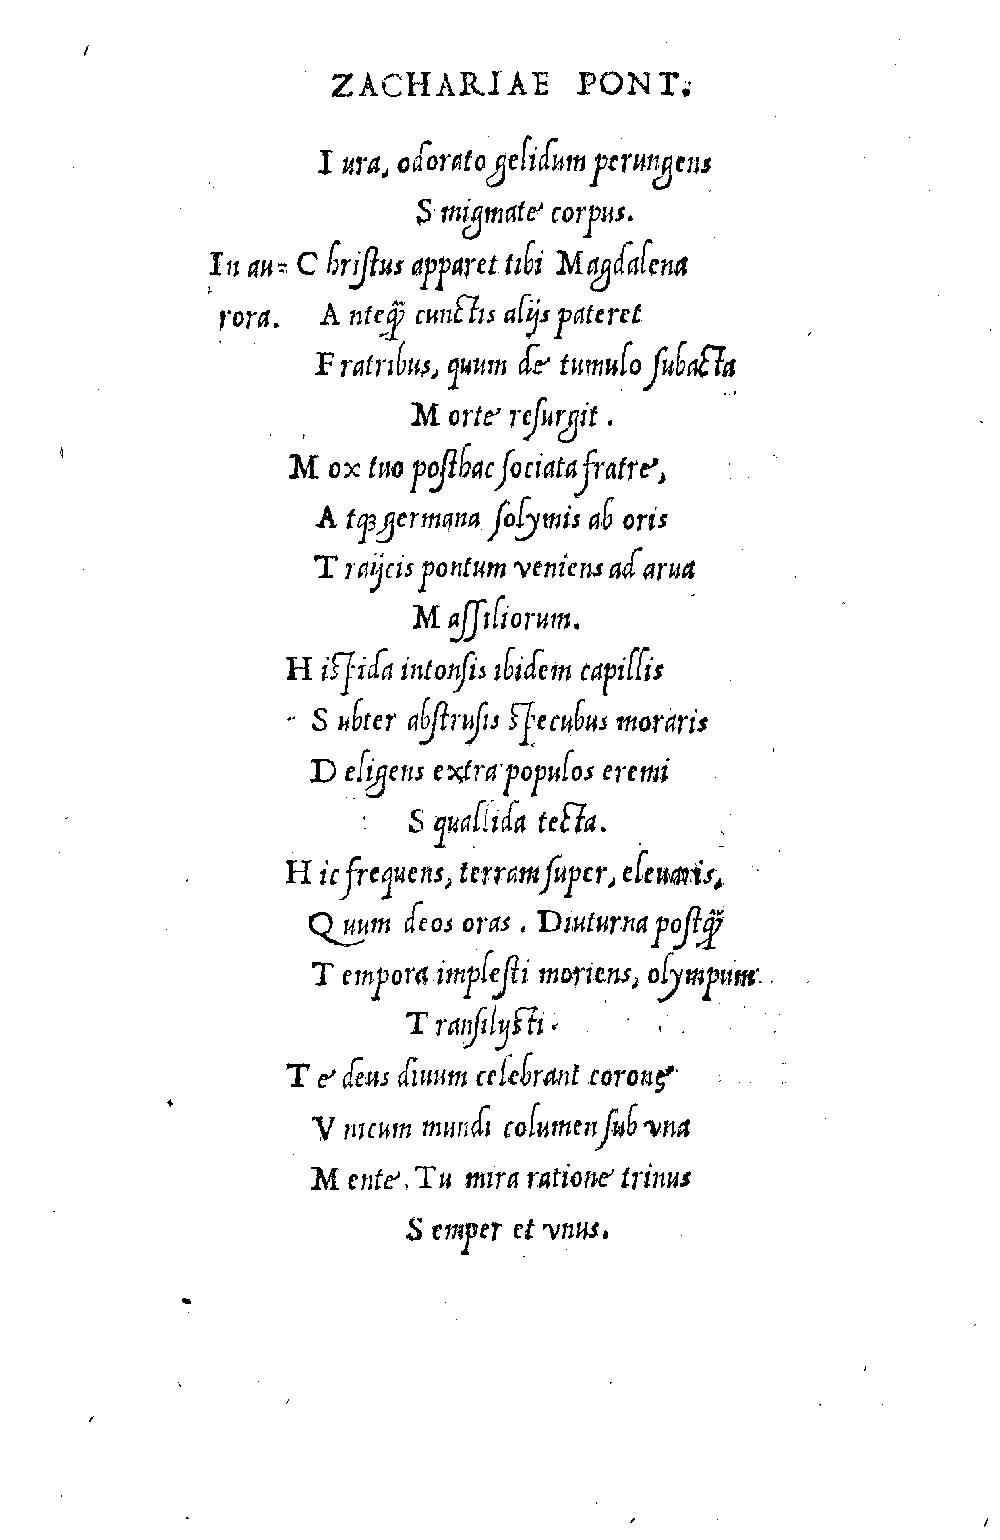 ZACHARIAE PONT.
I ura, odorato gelidum perungens
S migmate corpus.
In au= C hristus apparet tibi Magdalena
rora. A nteq̃ cunctis alijs pateret
F ratribus, quum de tumulo subacta
M orte resurgit.
M ox tuo posthac sociata fratre,
A tqꝫ germana solymis ab oris
T raijcis pontum veniens ad arua
M assiliorum.
H ispida intonsis ibidem capillis
S ubter abstrusis specubus moraris
D eligens extra populos eremi
S quallida tecta.
H ic frequens, terram super, eleuaris,
Q uum deos oras. Diuturna postq̃
T empora implesti moriens, olympum
T ransilijsti.
T e deus diuum celebrant coronę
V nicum mundi columen sub vna
M ente. Tu mira ratione trinus
S emper et vnus.